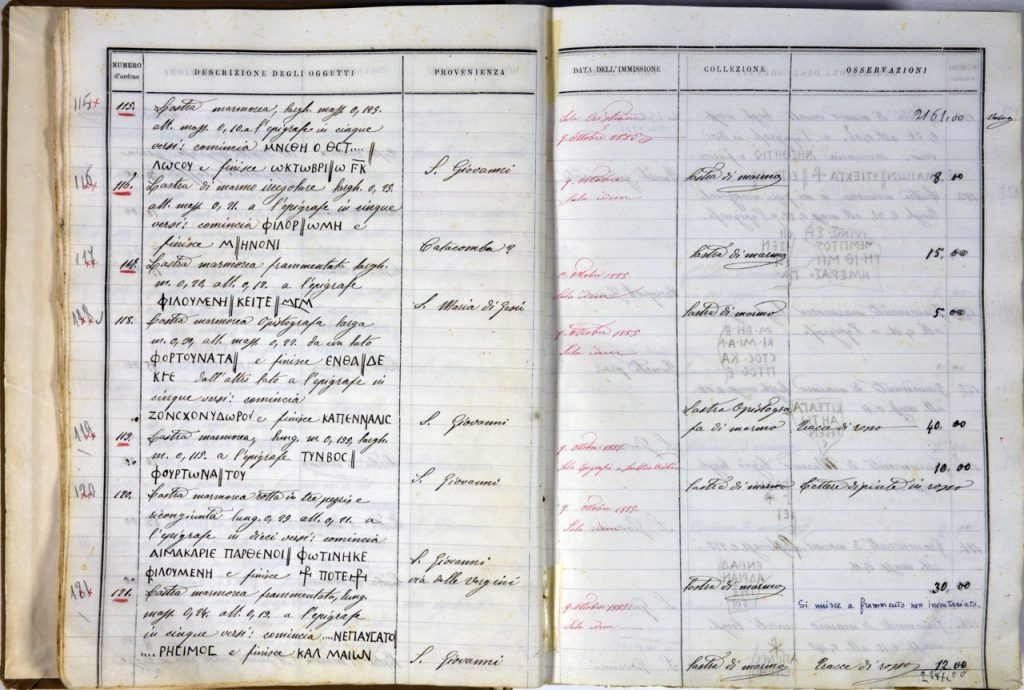 NUMERO
d'ordine
DESCRIZIONE DEGLI OGGETTI
PROVENIENZA
DATA DELL'IMMISSIONE
COLLEZIONE
OSSERVAZIONI
115
115. Lastra marmorea, largh. mass. 0,185.
alt. mass. 0,10. a l'epigrafe in cinque
versi: comincia ΜΝCΘΗ Ο ΘCΤ....||
ΛωCΟΥ e finisce ωΚΤωΒΡΙ||ω ΓΚ
S. Giovanni
9 Ottobre 1885
2161,00
Lastra di marmo
8. 00
116
116. Lastra di marmo irregolare largh. 0,23.
alt. mass. 0,21. a l'epigrafe in cinque
versi: comincia ΦΙΛΟΡ||ωΜΗ e
finisce Μ||ΗΝΟΝΙ
Catacomba ?
9. Ottobre
Sala idem
Lastra di marmo
15. 00
117
117. Lastra marmorea frammentata largh.
m. 0,22. alt. 0,12. a l'epigrafe
ΦΙΛΟΥΜΕΝΗ||ΚΕΙΤΕ||ΜΓΜ
S. Maria di Gesù
9. Ottobre 1885
Sala idem
Lastra di marmo
5. 00
118
118. Lastra marmorea Opistografa larga
m. 0,29. alt. mass. 0,22. da un lato
ΦΟΡΤΟΥΝΑΤΑ|| e finisce ΕΝΘΑ||ΔΕ
ΚΙΤΕ dall'altro lato a l'epigrafe in
cinque versi: comincia
ΖΟΝCΧΟΝΥΔωΡΟΥ e finisce ΚΑΠΕΝΝΑΛΙC
S. Giovanni
9. Ottobre 1885
Sala idem
Lastra Opistogra
fa di marmo
Tracce di rosso
40. 00
119
119. Lastra marmorea, lung. m. 0,155, largh.
m. 0,115. a l'epigrafe ΤΥΝΒΟC||
ΦΟΥΡΤωΝΑ||ΤΟΥ
S. Giovanni
9. Ottobre 1885
10. 00
Lastra di marmo
Lettere dipinte in rosso
120
120. Lastra marmorea rotta in tre pezzi e
ricongiunta lung. 0,29. alt. 0,21. a
l'epigrafe in dieci versi: comincia
ΑΙΜΑΚΑΡΙΕ ΠΑΡΘΕΝΟΙ|| ΦωΤΙΝΗΚΕ
ΦΙΛΟΥΜΕΝΗ e finisce
S. Giovanni
via delle vergini
9. Ottobre 1885.
Sala idem
Lastra di marmo
30. 00
Si unisce a frammento non inventariato.
121
121. Lastra marmorea frammentata, lung.
mass. 0,24. alt. 0,19. a l'epigrafe
in cinque versi: comincia ....ΝΕΠΑΥCΑΤΟ
....ΡΗCΙΜΟC e finisce ΚΑΛ ΜΑΙωΝ
S. Giovanni
9. Ottobre 1885
Sala idem
Lastra di marmo
Tracce di rosso
12. 00